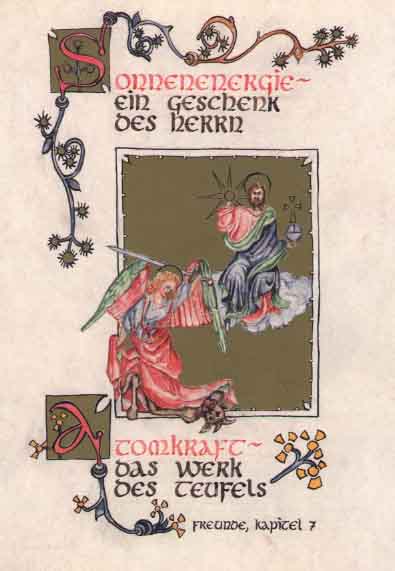 Sonnenenergie~
ein Geschenk
des Herrn
Atomkraft~
das Werk
des Teufels
Freunde, Kapitel 7